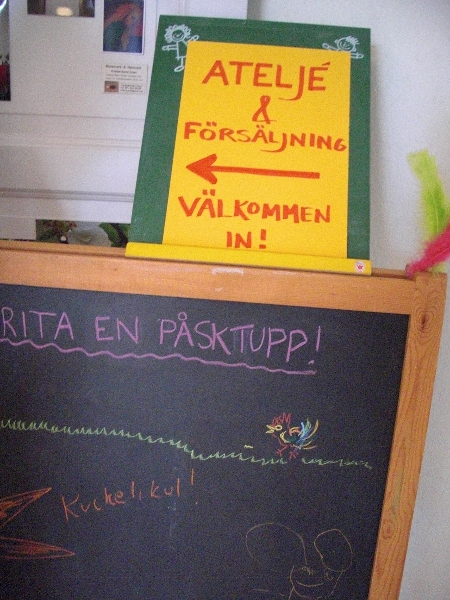 ATELJÉ
&
FÖRSÄLJNING
VÄLKOMMEN
IN!
RITA EN PÅSKTUPP!
Kuckelikul!